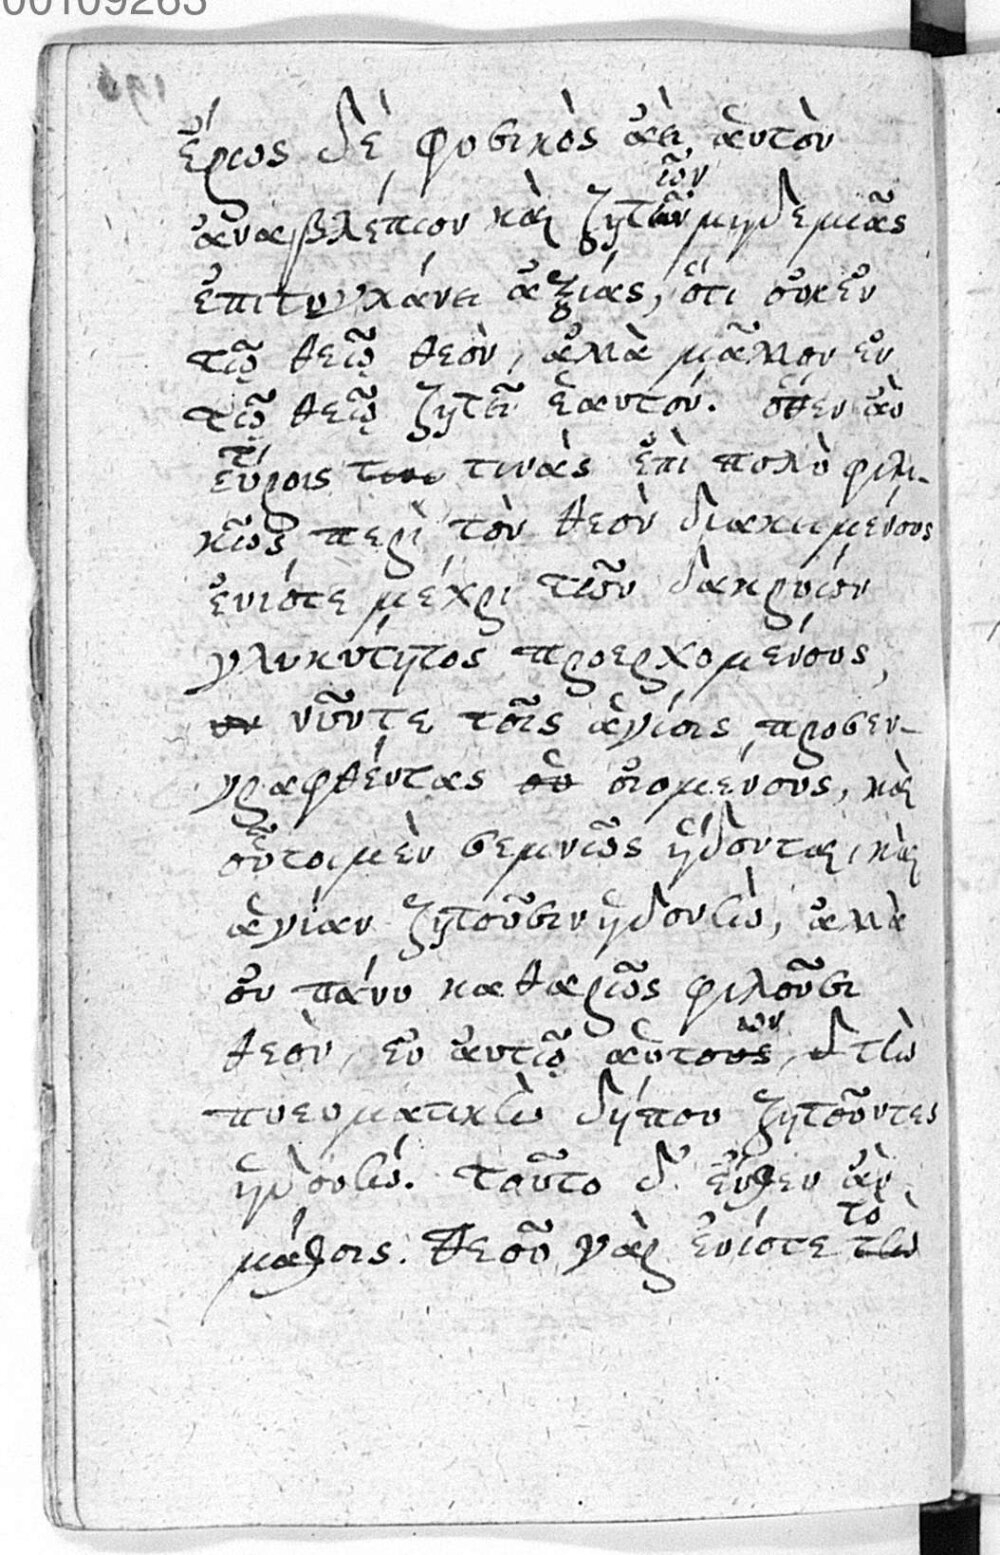 00109263
ἔρως δὲ φυσικὸς ἀεὶ ἁυτὸν
ἀναβλέπων καὶ ζητῶν μηδεμιᾶς
ἐπιτυγχάνει ἀξίας, ὅτι οὐκ ἐν
τῷ θεῷ θεὸν, ἀλλὰ μᾶλλον ἐν
τῷ θεῷ ζητεῖ ἑαυτόν. ὅθεν ἂν
εὕροις τινὰς ἐπὶ πολὺ φιλι-
κῶς περὶ τὸν θεὸν διακειμένους
ἐνίοτε μέχρι τῶν δακρύων
γλυκύτητος προερχομένους,
νῦν τε τοῖς ἁγίοις προσεν-
γραφθέντας οἰομένους, καὶ
οὗτοι μὲν σεμνῶς ἥδονται, καὶ
ἁγίαν ζητοῦσιν ἡδονὴν, ἀλλὰ
οὐ πάνυ καθαρῶς φιλοῦσι
θεὸν, ἐν αὐτῷ ἁυτῶν τὴν
πνευματικὴν δήπου ζητοῦντες
ἡδονήν. τοῦτο δ' ἔνθεν ἂν
μάθοις. Θεοῦ γὰρ ἐνίοτε τὸ